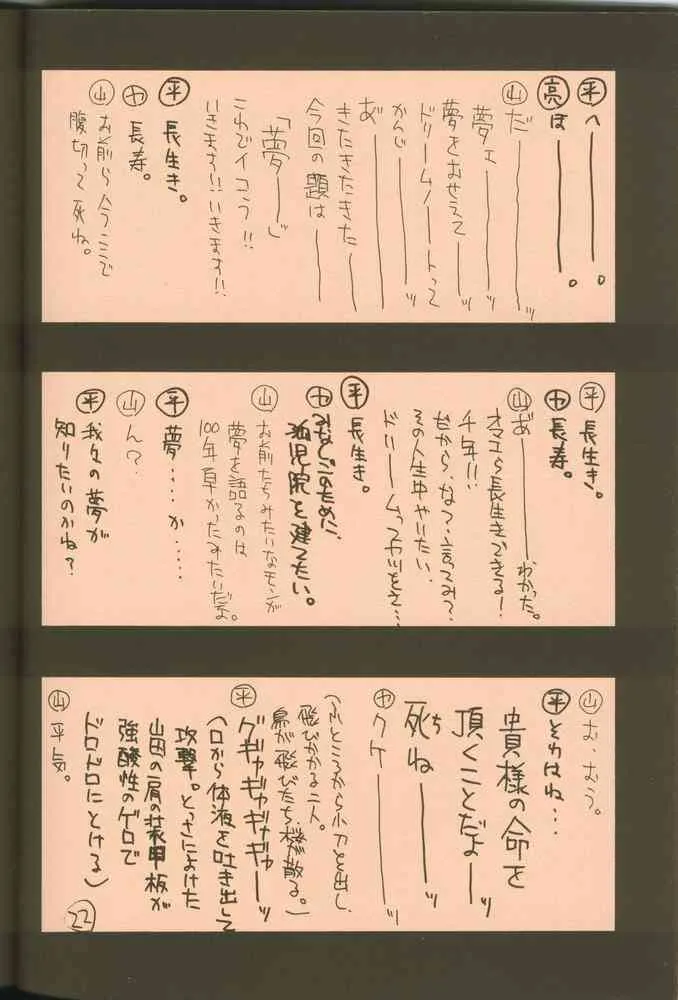 平 へ———。
亮 は———。
山 だ———ッ
夢ェ———ッ
夢をおせえて———ッ
ドリームノートって
かんじ———ッ
あ゛———
きたきたきた———
今回の題は———
「夢———」
これでイコう!!
いきます!!いきます!!
平 長生き。
ヤ 長寿。
山 お前ら今ここで
腹切って死ね。
平 長生き。
ヤ 長寿。
山 あ゛———わかった。
オマエら長生きできる!
千年!!
だから、な?、言ってみ?
その人生中やりたい、
ドリームってヤツをさ…
平 長生き。
ヤ
孤児院を建てたい。
山 お前たちみたいなモンが
夢を語るのは
100年早かったみたいだよ。
平 夢‥‥か‥‥‥
山 ん?
平 我々の夢が
知りたいのかね?
山 む、むう。
平 それはね…
貴様の命を
頂くことだよーッ
死ねーーーッ
ヤ クケーーーッ
(ふところから小刀とを出し、
飛びかかる二人。
鳥が飛びたち、桜が散る。)
平 グギャギャギャギャーッ
(口から体液を吐き出して
攻撃。とっさによけた
山田の肩の装甲板が
強酸性のゲロで
ドロドロにとける)
山 平気。
22